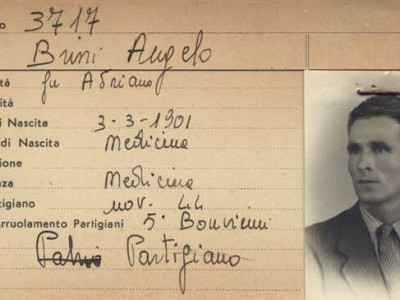 o 3717
Brini Angelo
ità fu Adriano
ità
di Nascita 3-3-1901
di Nascita Medicina
zione
nza Medicina
tigiano nov. 44
Arruolamento Partigiani 5ª Bonvicini
Partigiano